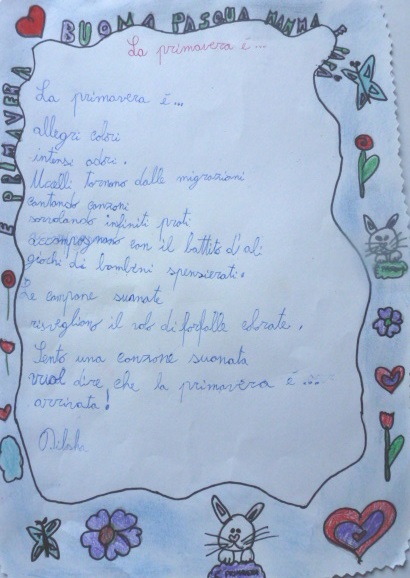 BUONA PASQUA MAMMA
E PRIMAVERA
La primavera é...
La primavera é...
allegri colori
intensi odori.
Uccelli tornano dalle migrazioni
cantando canzoni
sorvolando infiniti prati
accompagnano con il battito d'ali
giochi di bambini spensierati.
Le campane suonate
risvegliano il volo di farfalle colorate.
Sento una canzone suonata
vuol dire che la primavera é...
arrivata!